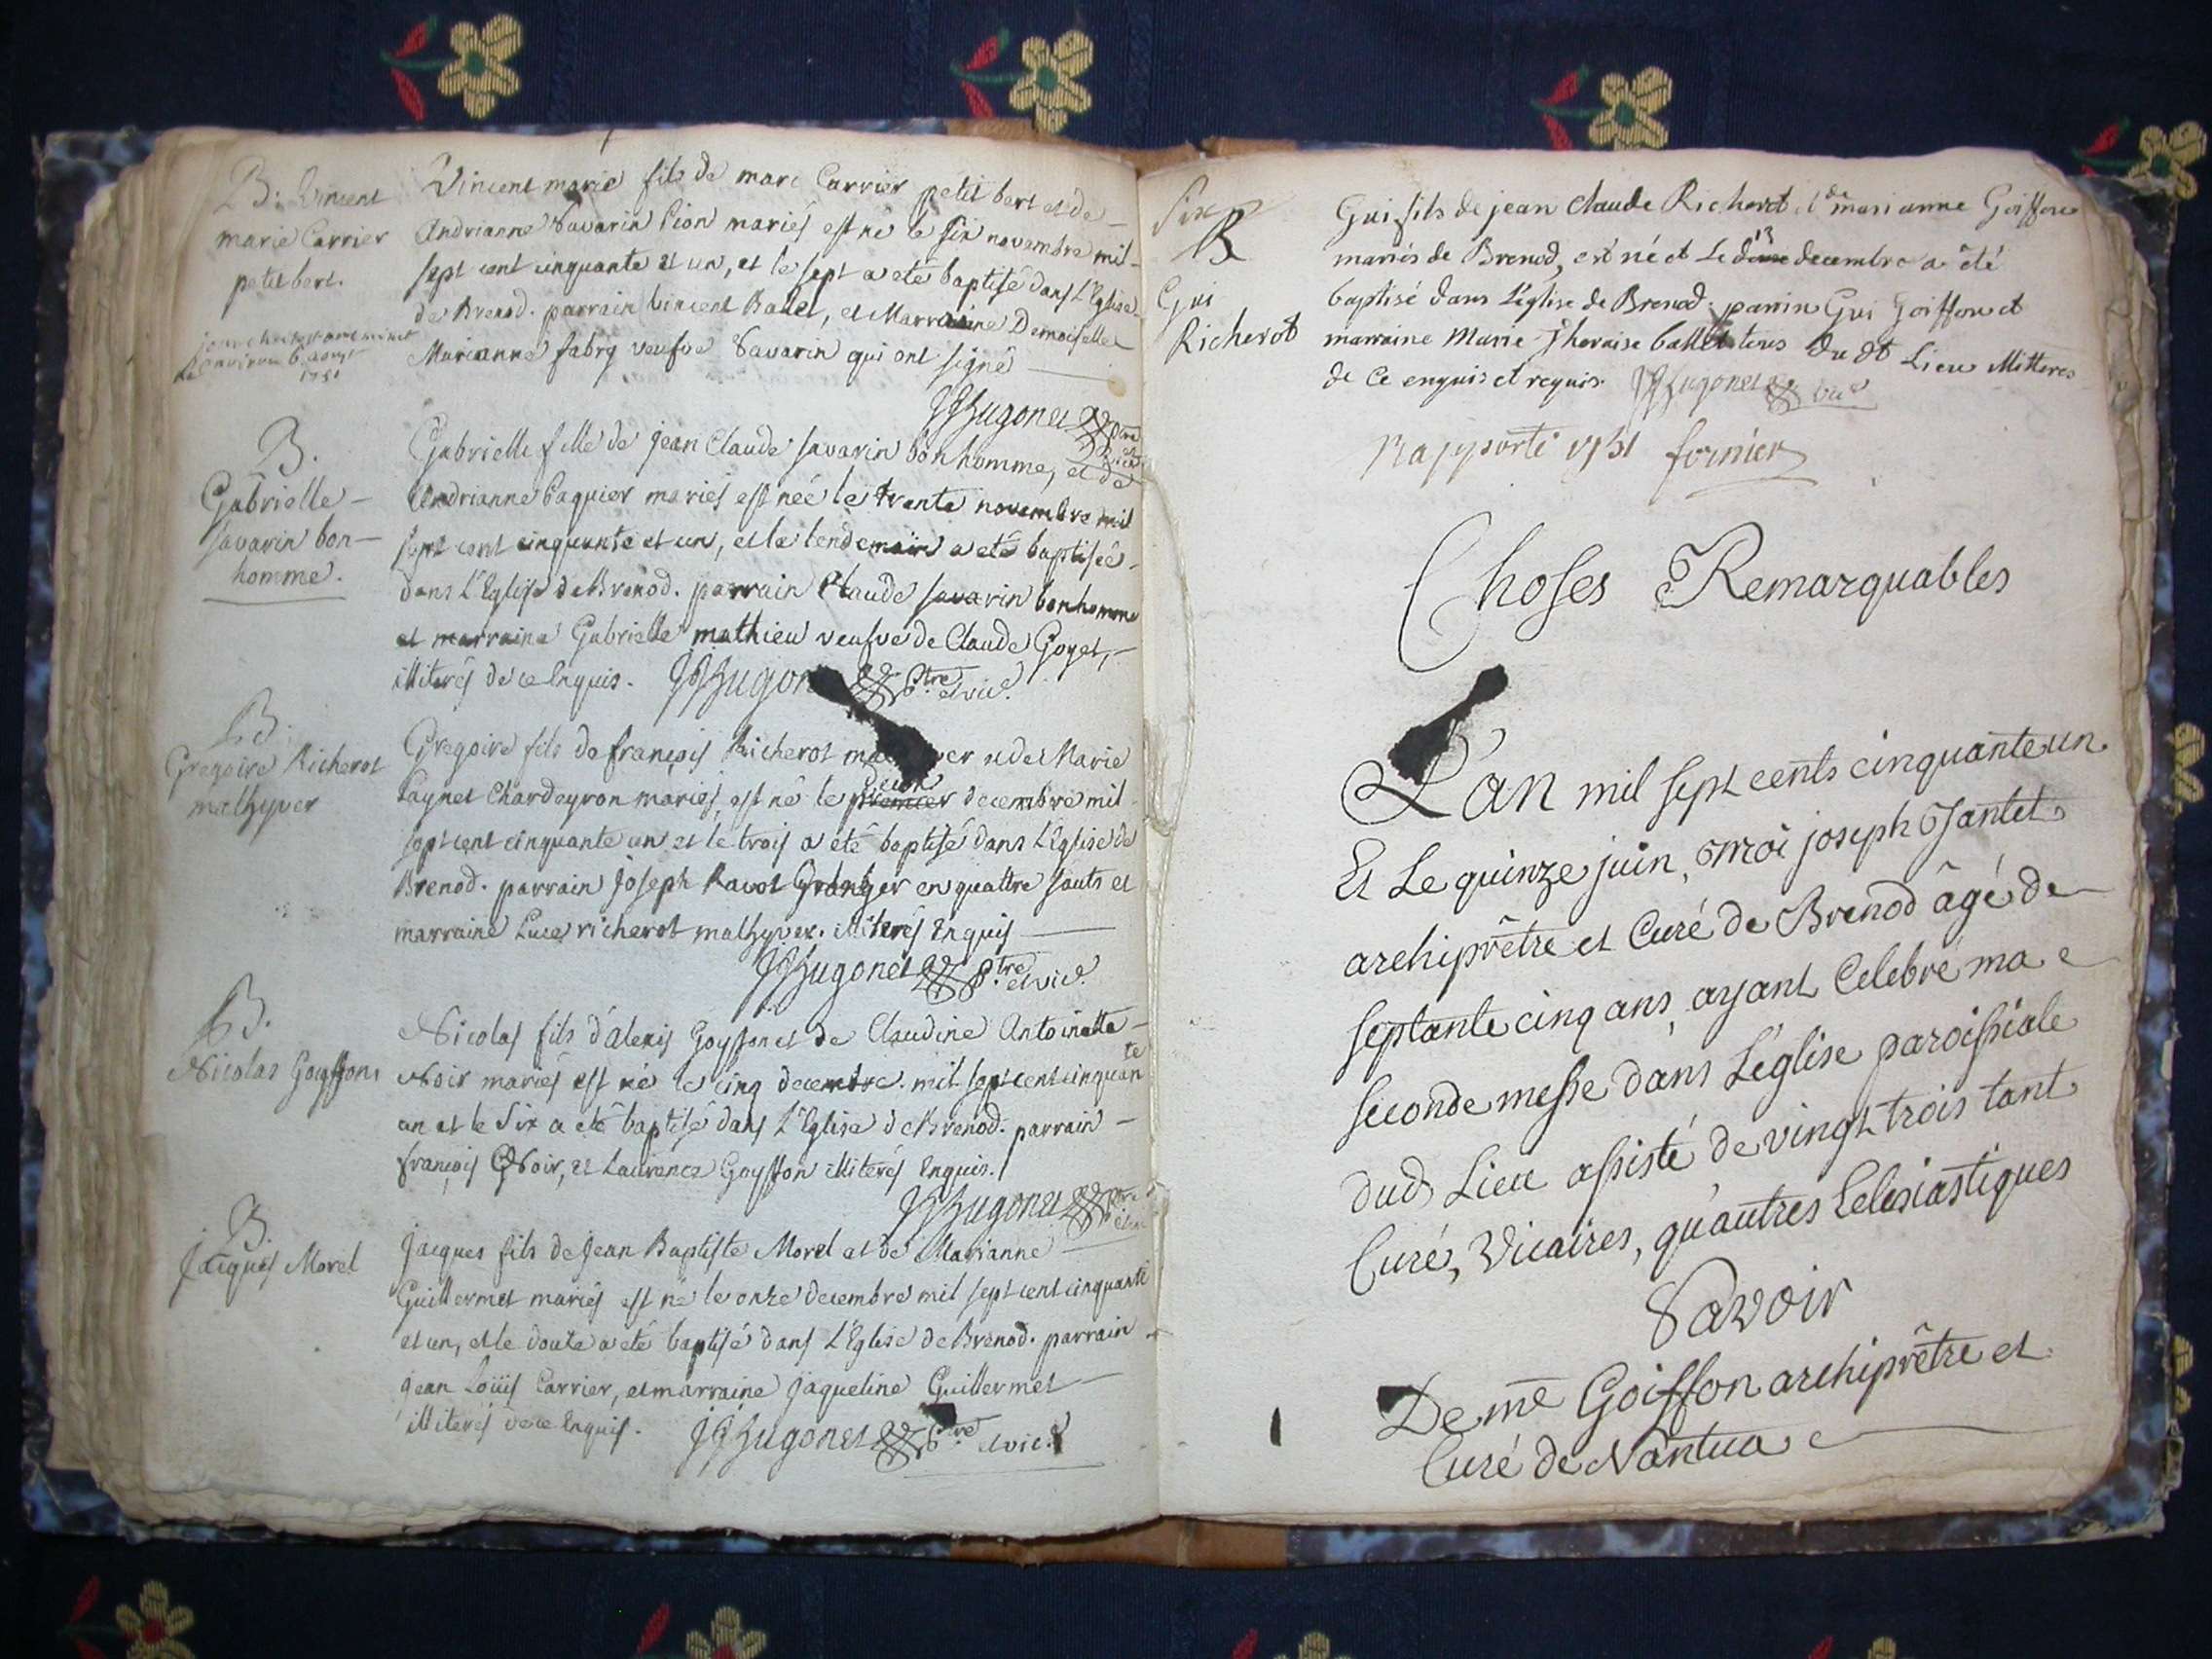 B. Vincent
marie Carrier
petit bert.
1751
Vincent marie fils de marc Carrier petit bert et de
Andrianne Savarin Pion mariés est né le six novembre mil
sept cent cinquante et un, et le sept a eté baptisé dans L'Eglise
de Brenod. parrain Vincent Ballet, et Marraine Demoiselle
Marianne fabry veufve Savarin qui ont signé
JJHugonet ptre et vic.
B.
Gabrielle
savarin bon-
homme.
Gabrielle fille de jean Claude savarin bonhomme, et de
Andrianne Caquier mariés est née le trente novembre mil
sept cent cinquante et un, et le lendemain a eté baptisée
dans L'Eglise de Brenod. parrain Claude savarin bonhomme
et marraine Gabrielle mathieu veufve de Claude Goyet,
illiterés de ce Enquis. JJHugon ptre et vic.
B.
Gregoire Richerot
malhyver
Gregoire fils de françois Richerot ma ver et de Marie
Paynet Chardeyron mariés, est né le premier deux decembre mil
sept cent cinquante un et le trois a eté baptisé dans L'Eglise de
Brenod. parrain joseph Ravot Granger en quattre sauts et
marraine Luce richerot malhyver. illiterés Enquis
JJHugonet ptre et vic.
B.
Nicolas Goyffon
Nicolas fils d'alexis Goyffon et de Claudine Antoinette
Noir mariés est né le cinq decembre mil sept cent cinquante
un et le six a eté baptisé dans L'Eglise de Brenod. parrain
françois Noir, et Laurence Goyffon illiterés Enquis.
JJHugonet ptre
B.
Jacques Morel
Jacques fils de Jean Baptiste Morel et de Marianne
Guillermet mariés est né le onze decembre mil sept cent cinquante
et un, et le douze a eté baptisé dans L'Eglise de Brenod. parrain
jean Loüis Carrier, et marraine jaqueline Guillermet
illiterés de ce Enquis. JJHugonet ptre et vic.
six
B
Gui
Richerot
Gui fils de jean Claude Richerot et de marianne Goiffon
mariés de Brenod, est né et Le 13 decembre a été
baptisé dans L'église de Brenod. parrin Gui Goiffon et
marraine Marie Theraise ballet tous du dt Lieu illitteres
de ce enquis et requis. JJHugonet vic
Rapporté 1751 fornier
Choses Remarquables
L'an mil sept cents cinquante un
Et Le quinze juin, moi joseph Jantet
archiprêtre et Curé de Brenod âgé de
septante cinq ans, ayant Celebré ma
seconde messe dans L'église paroissiale
dud Lieu assisté de vingt trois tant
Curé, Vicaires, qu'autres Eclesiastiques
Savoir
De mre Goiffon archiprêtre et
Curé de Nantua